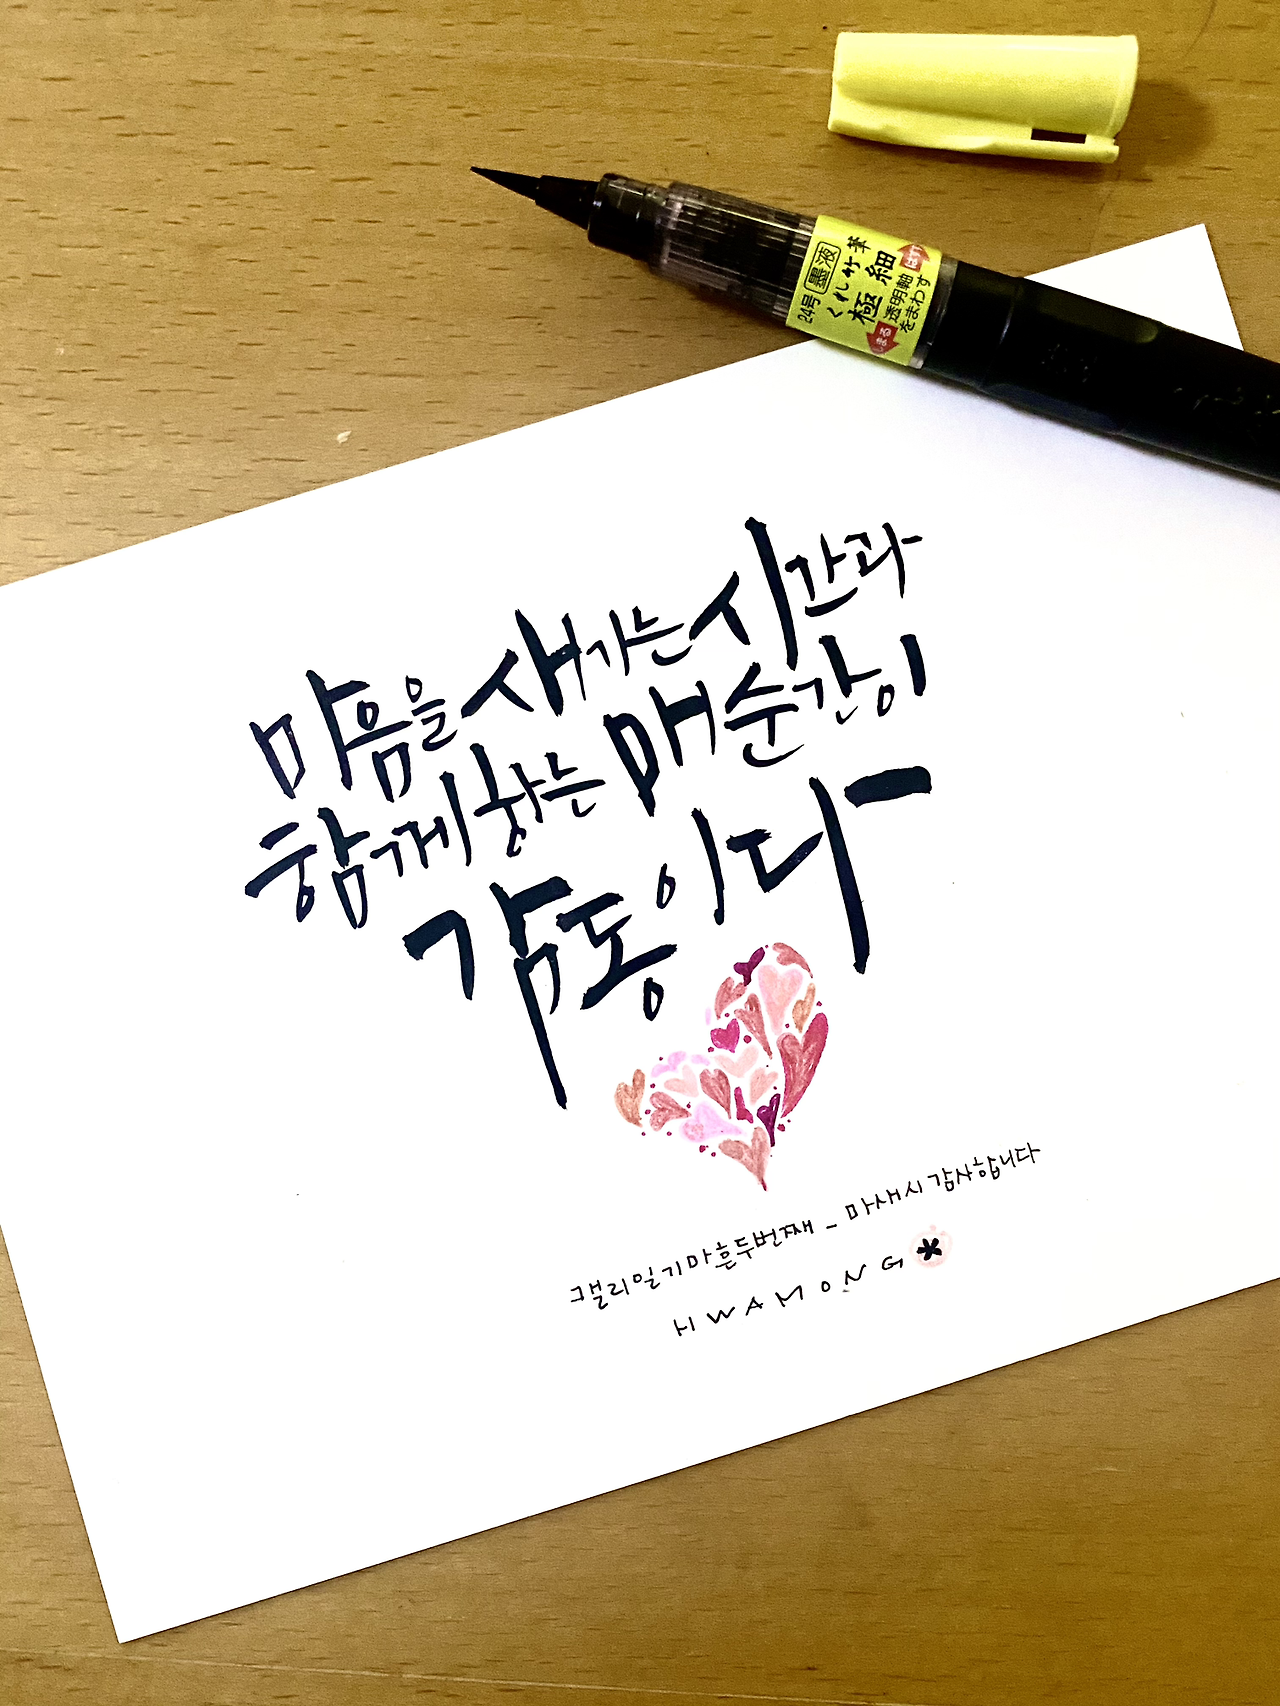 くれ竹筆
極細
24号 墨液
透明軸
をまわす
はずす
しまる
마음을 새기는 시간과
함께하는 매 순간이
감동이다
캘리일기마흔두번째 _ 마새시 감사합니다
HWAMONG